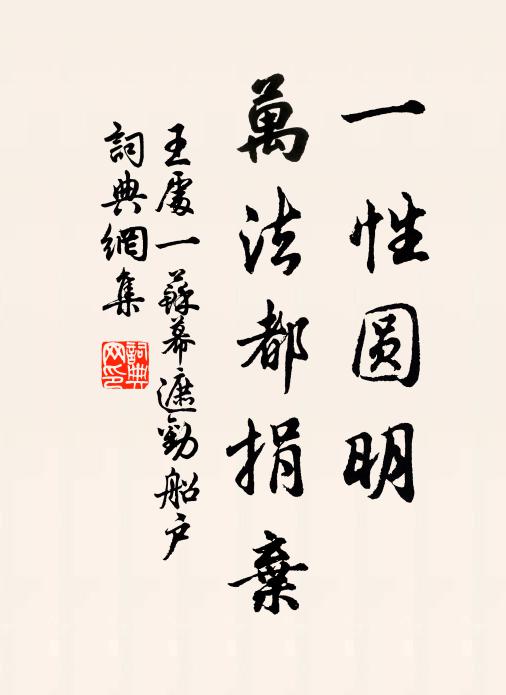 一性圆明
萬法都捐棄
王處一蘇幕遮勸船戶
詞典網集
詞典网印